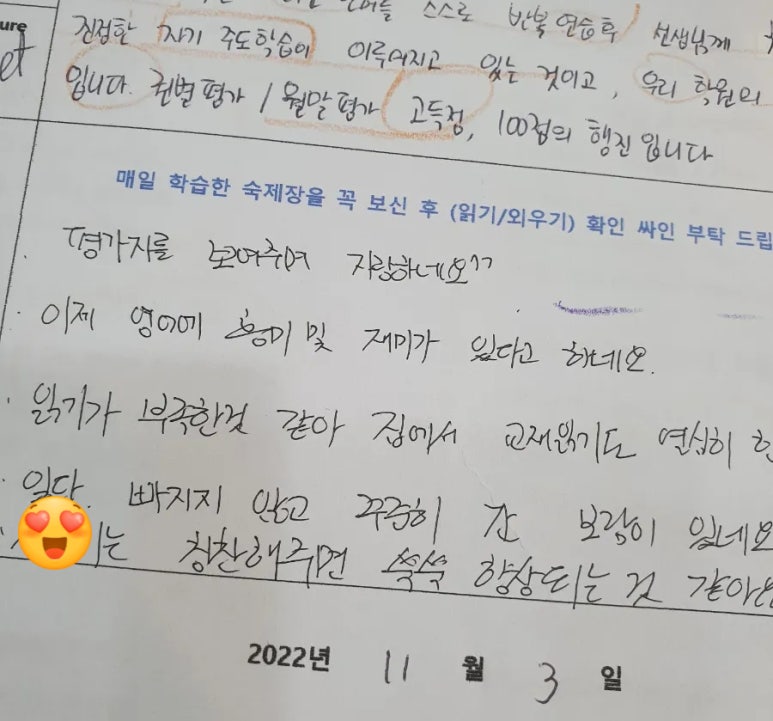 스스로 반복 연습 후 선생님께
ure
진정한 자기 주도학습이 이루어지고 있는 것이고, 우리 학원의
et
입니다. 레벨평가 / 월말평가 고득점, 100점의 행진입니다
매일 학습한 숙제장을 꼭 보신 후 (읽기/외우기) 확인 싸인 부탁 드립
· 평가지를 보여주며 자랑하네요^^
· 이제 영어에 흥미 및 재미가 있다고 하네요.
· 읽기가 부족한것 같아 집에서 교재읽기도 열심히 한
· 일다. 빠지지 않고 꾸준히 간 보람이 있네요
는 칭찬해주면 쑥쑥 향상되는 것 같아요
2022년 11 월 3 일